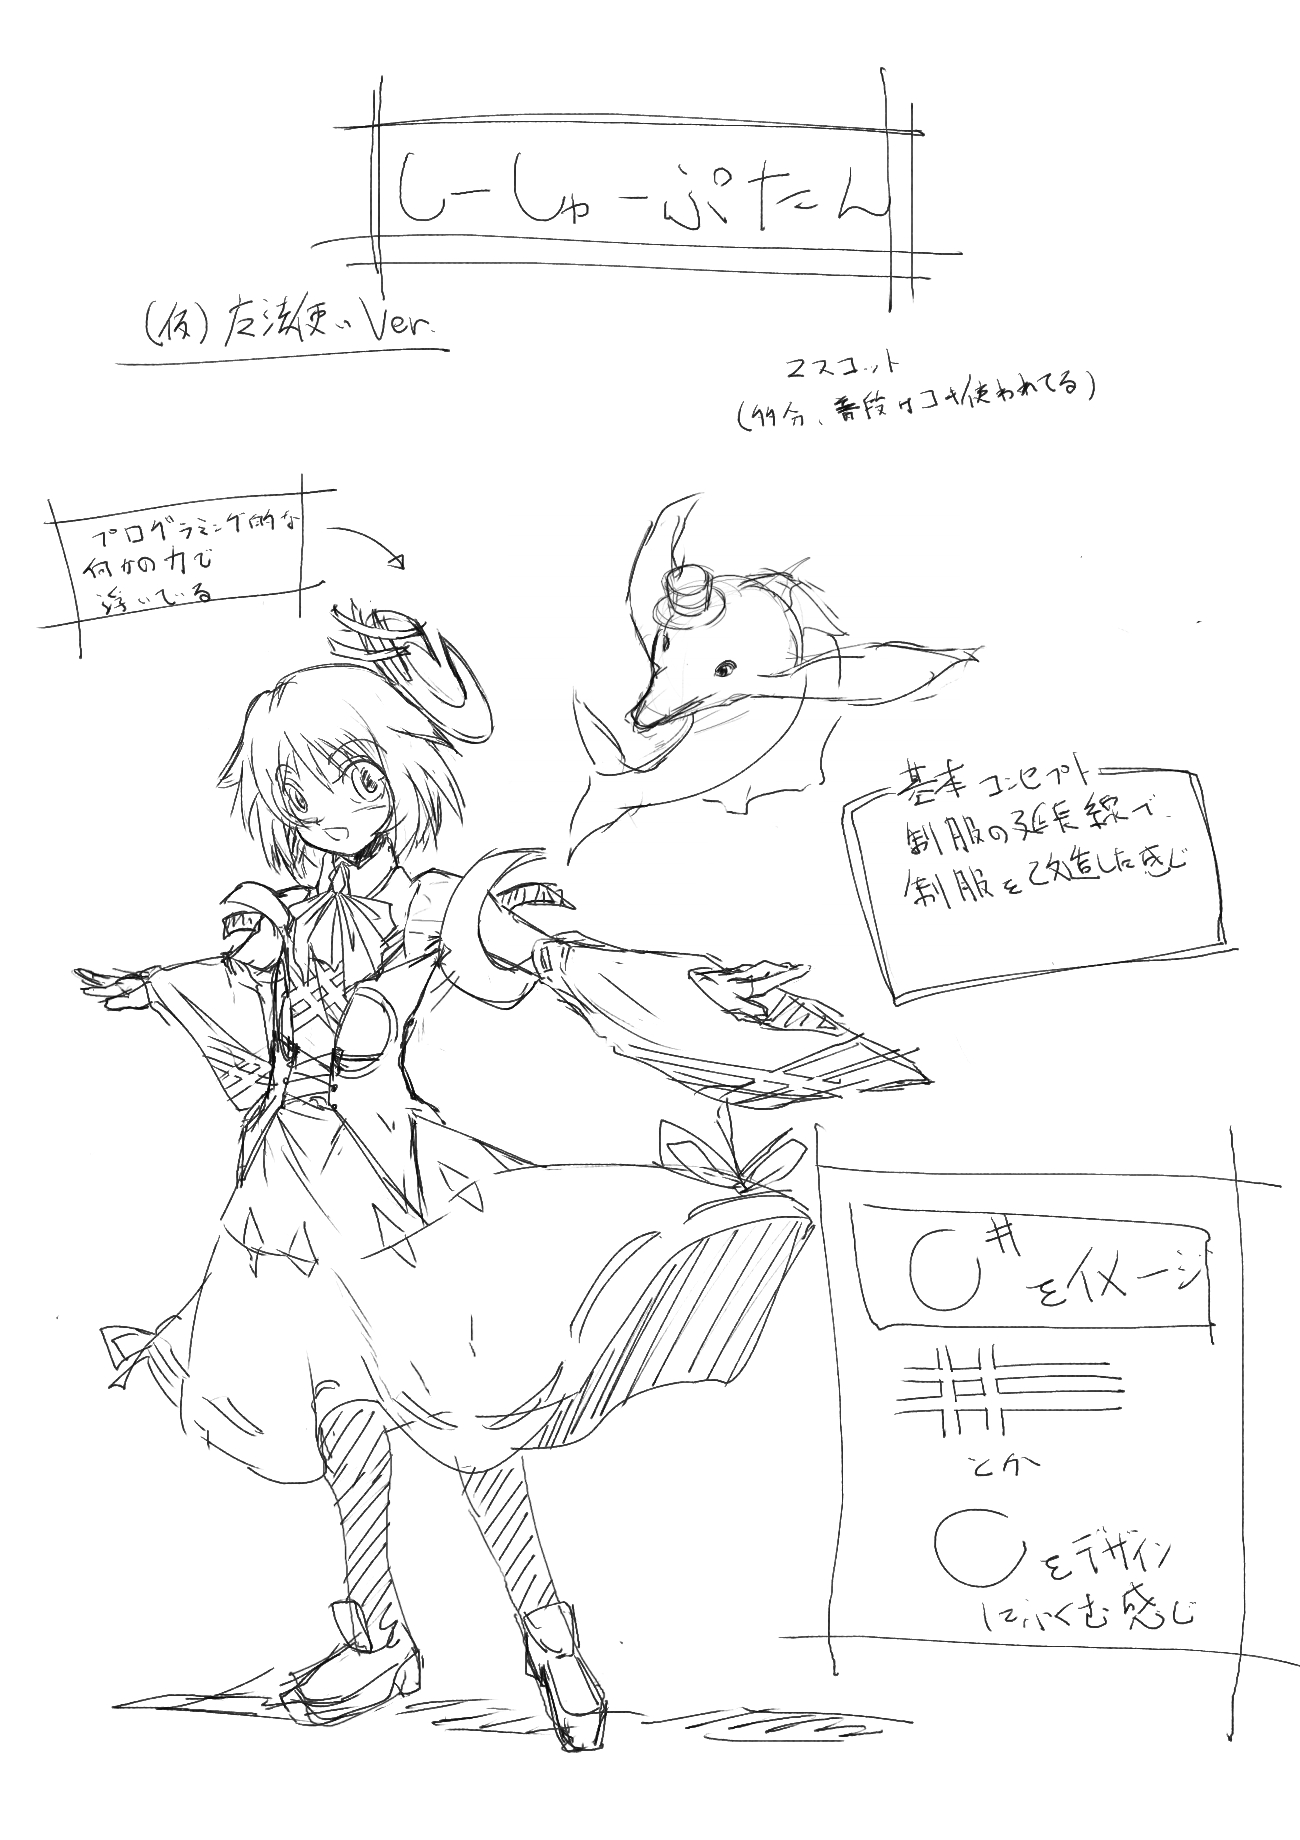 しーしゅーぷたん
(仮)左法使い Ver.
マスコット
(多分、普段はコキ使われてる)
プログラミング的な
何かの力で
浮いている
基本コンセプト
制服の延長線で、
制服を改造した感じ
C#をイメージ
とか
Cをデザイン
にふくむ感じ